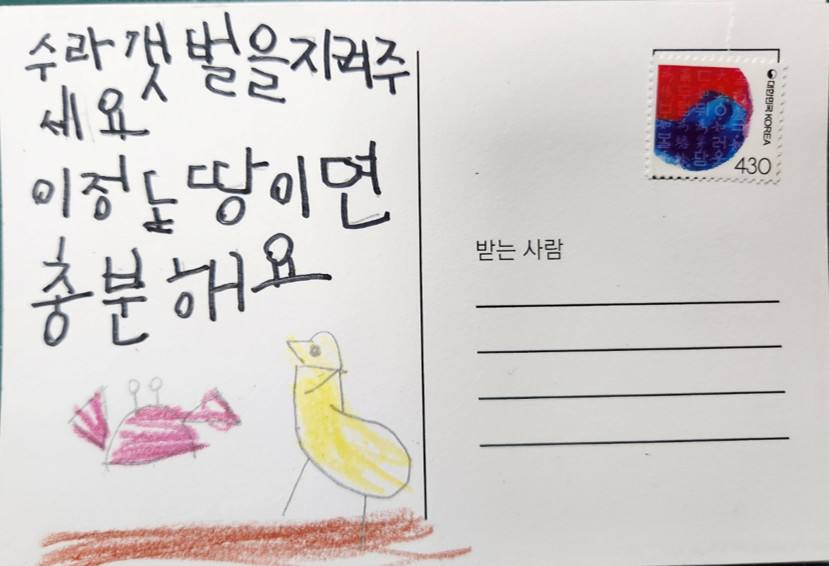 수라갯벌을지켜주
세요
이정도땅이면
충분해요
대한민국 KOREA
430
받는 사람